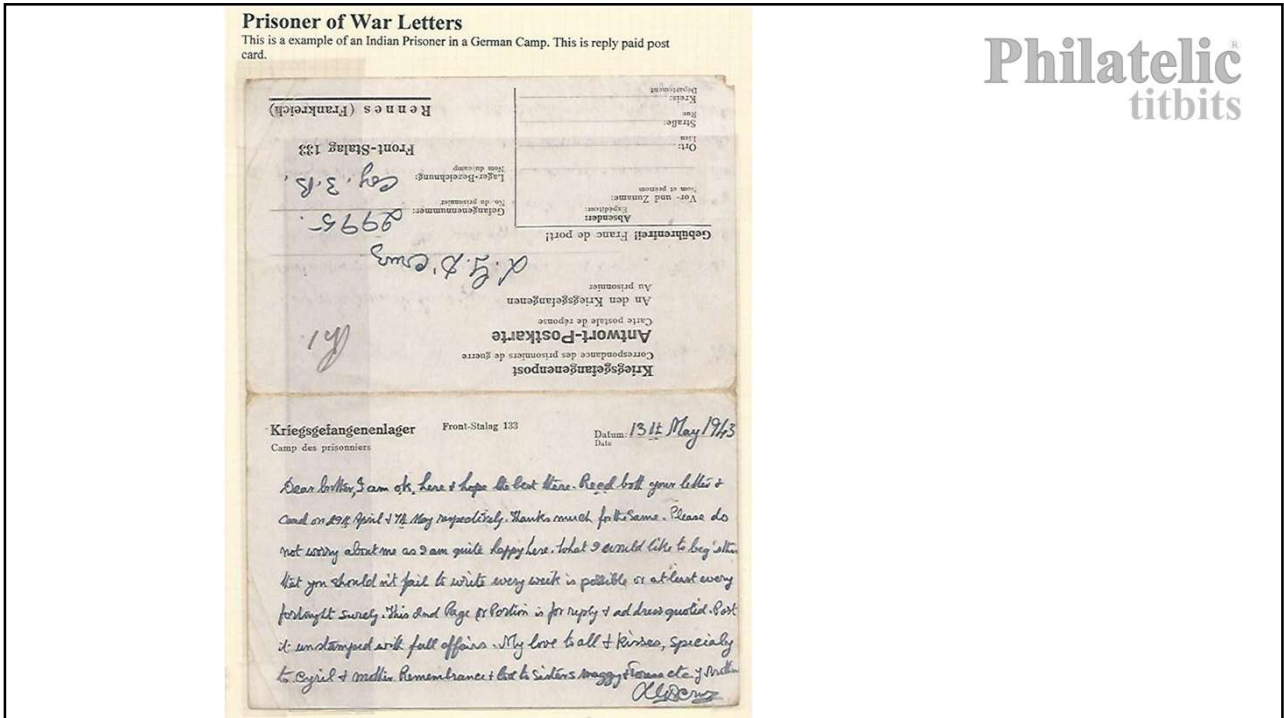 Prisoner of War Letters
This is a example of an Indian Prisoner in a German Camp. This is reply paid post
card.
Philatelic
titbits
Kriegsgefangenenpost
Correspondance des prisonniers de guerre
Antwort-Postkarte
Carte postale de réponse
An den Kriegsgefangenen
Au prisonnier
L. G. D'Cruz
Gebührenfrei! Franc de port!
Absender:
Expéditeur:
Vor- und Zuname:
Nom et prénom
Ort:
Lieu
Straße:
Rue
Kreis:
Département
Gefangenennummer: 2995.
No. du prisonnier
Lager-Bezeichnung: Coy. 3.B,
Nom du camp
Front-Stalag 133
Rennes (Frankreich)
Kriegsgefangenenlager Front-Stalag 133 Datum: 13th May 1943
Camp des prisonniers Date
Dear brother, I am ok, here & hope the best there. Recd both your letter &
card on 29th April & 7th May respectively. Thanks much for the same. Please do
not worry about me as I am quite happy here. What I would like to beg
that you should n't fail to write every week is possible or at least every
fortnight surely. This 2nd Page or Portion is for reply & address quoted. Post
it unstamped with full affairs. My love to all & Kisses, specialy
to Cyril & mother Remembrance & to Sisters Maggy & etc. Brother
LGDCruz